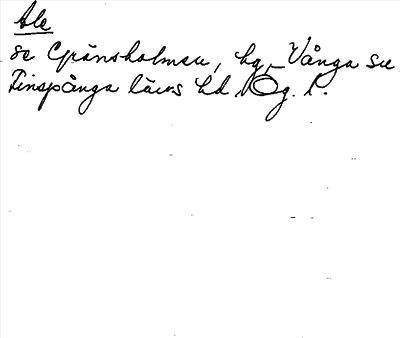 Ale
se Gränsholmen, hg, Vånga sn
Finspånga läns hd, Ög. l.